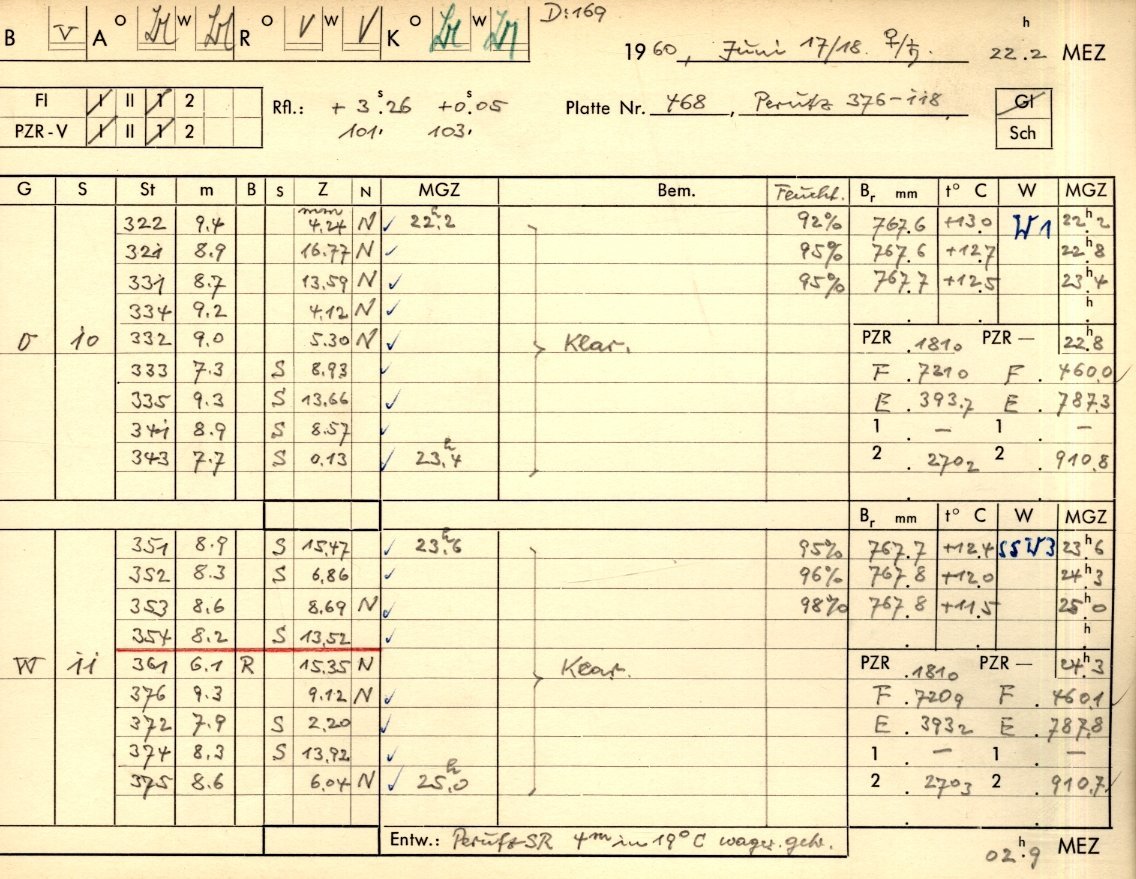 D:169
B V A O W R O V W V K O W
1960, Juni 17/18. ♀/♄. 22.2 h MEZ
FI I II 1 2
PZR-V I II 1 2
Rfl.: + 3.s26 +0.s05
101. 103.
Platte Nr. 468, Perutz 376-118
Gl
Sch
G S St m B S Z N MGZ Bem. Feucht. Br mm t° C W MGZ
322 9.4 mm 4,24 N ✓ 22.h2 92% 767.6 +13.0 W1 22.h2
321 8.9 16.77 N ✓ 95% 767.6 +12.7 22.h8
331 8.7 13,59 N ✓ 95% 767.7 +12.5 23.h4
334 9.2 4,12 N ✓ h
O 10 332 9.0 5.30 N ✓ Klar. PZR .1810 PZR — 22.h8
333 7.3 S 8,93 ✓ F .7210 F .460,0 ✓
335 9.3 S 13,66 ✓ E .393,7 E .787,3
341 8.9 S 8.57 1 . — 1 . —
343 7.7 S 0,13 ✓ 23.h4 2 .2702 2 .910,8
Br mm t° C W MGZ
351 8.9 S 15,47 ✓ 23.h6 95% 767.7 +12.4 SSW3 23.h6
352 8.3 S 6,86 ✓ 96% 767.8 +12.0 24.h3
353 8.6 8,69 N ✓ 98% 767.8 +11.5 25.h0
354 8.2 S 13,52 ✓ h
W 11 361 6.1 B R 15.35 N Klar. PZR .1810 PZR — 24.h3
376 9.3 9.12 N ✓ F .7209 F .460,1 ✓
372 7.9 S 2,20 ✓ E .3932 E .787,8
374 8.3 S 13,92 ✓ 1 . — 1 . —
375 8.6 6,04 N ✓ 25.h0 2 .2703 2 .910,7 ✓
Entw.: Perutz SR 4m in 19°C wager. gehr.
02.h9 MEZ